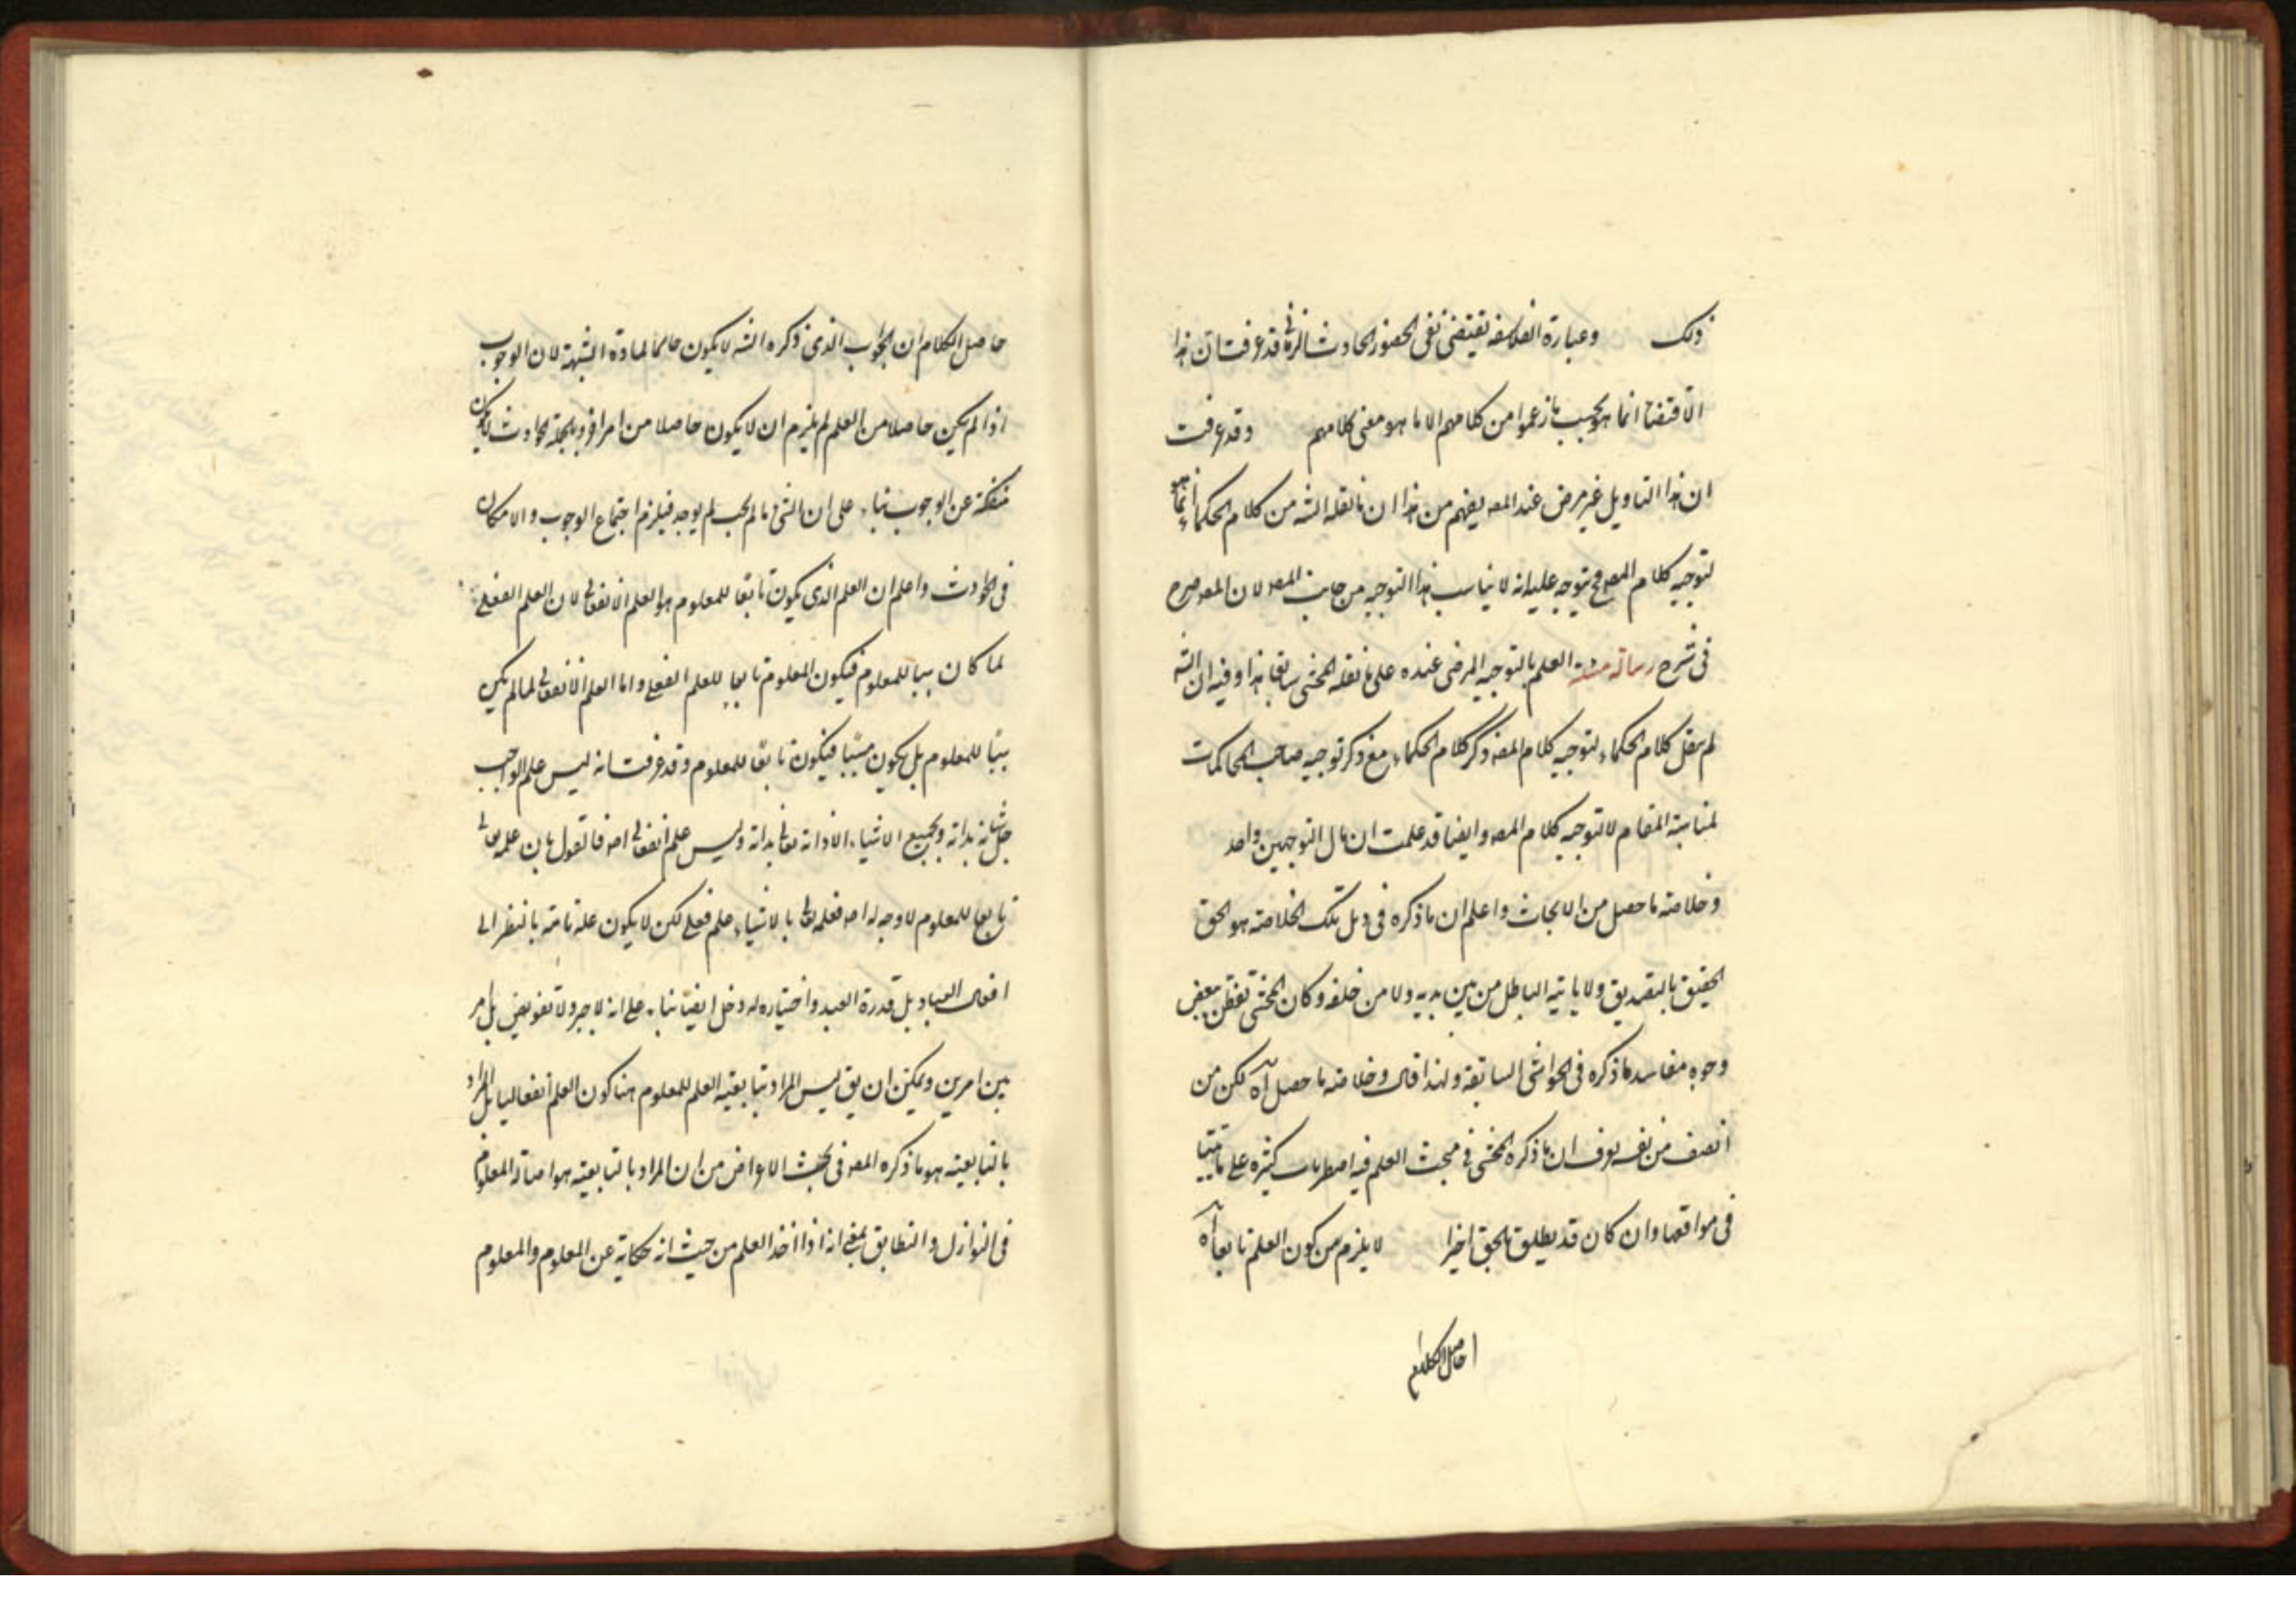 ذلك وعبارة الفلاسفة تقتضى نفى الحضور الحادث قد عرفت ان هذا
الاقتضاء انما هو بحسب ما زعموا من كلامهم الا ما هو معنى كلامهم وقد عرفت
ان هذا التاويل غير مرض عند المصـ يفهم من هذا ان ما نقله الشـ من كلام الحكماء انما هو
لتوجيه كلام المصـ فح يتوجه عليه انه لا يناسب هذا التوجيه من جانب المصـ لان المصـ صرح
فى شرح رسالة مسئلة العلم بالتوجيه المرضى عنده على ما نقله المحشى سابقا هذا وفيه ان الشـ
لم ينقل كلام الحكماء لتوجيه كلام المصـ وذكر كلام الحكماء مع ذكر توجيه صاحب المحاكمات
لمناسبة المقام لا لتوجيه كلام المصـ وايضا قد علمت ان مال التوجيهين واحد
وخلاصة ما حصل من الابحاث واعلم ان ما ذكره فى ذيل تلك الخلاصة هو الحق
الحقيق بالتصديق ولا ياتيه الباطل من بين يديه ولا من خلفه وكان المحشى تفطن ببعض
وجوه مفاسد ما ذكره فى الحواشى السابقة ولهذا قال وخلاصة ما حصل آه لكن من
انصف من نفسه يعرف ان ما ذكره المحشى فى مبحث العلم فيه اضطراب كثيرة على ما بينا
فى مواقعها وان كان قد يطلق بالحق اخيرا لا يلزم من كون العلم تابعا آه
حاصل الكلام
حاصل الكلام ان الجواب الذى ذكره الشـ لا يكون حاسما لمادة الشبهة لان الوجوب
اذا لم يكن حاصلا من العلم لم يلزم ان لا يكون حاصلا من امر اخر وبالجملة الحوادث لا يكون
منفكة عن الوجوب بناء على ان الشىء ما لم يجب لم يوجد فيلزم اجتماع الوجوب والامكان
فى الحوادث واعلم ان العلم الذى يكون تابعا للمعلوم هو العلم الانفعالى لان العلم الفعلى
لما كان سببا للمعلوم فيكون المعلوم تابعا للعلم الفعلى واما العلم الانفعالى لما لم يكن
سببا للمعلوم بل يكون مسببا فيكون تابعا للمعلوم وقد عرفت انه ليس علم الواجب
جل شانه بذاته وبجميع الاشياء الا ذاته تعالى بذاته وليس علم انفعالى اصـ فالقول بان علمه تعالى
تابعا للمعلوم لا وجه له اصـ فعلمه تعالى بالاشياء علم فعلى لكن لا يكون علة تامة بالنظر الى
افعال العباد بل قدرة العبد واختياره له دخل ايضا بناء على انه لا جبر ولا تفويض بل امر
بين امرين ويمكن ان يق ليس المراد بتابعية العلم للمعلوم هنا كون العلم انفعاليا بل المراد
بالتابعية هو ما ذكره المصـ فى بحث الاعراض من ان المراد بالتابعية هو اصالة المعلوم
فى التوازن والتطابق بمعنى انه اذا اخذ العلم من حيث انه حكاية عن المعلوم والمعلوم